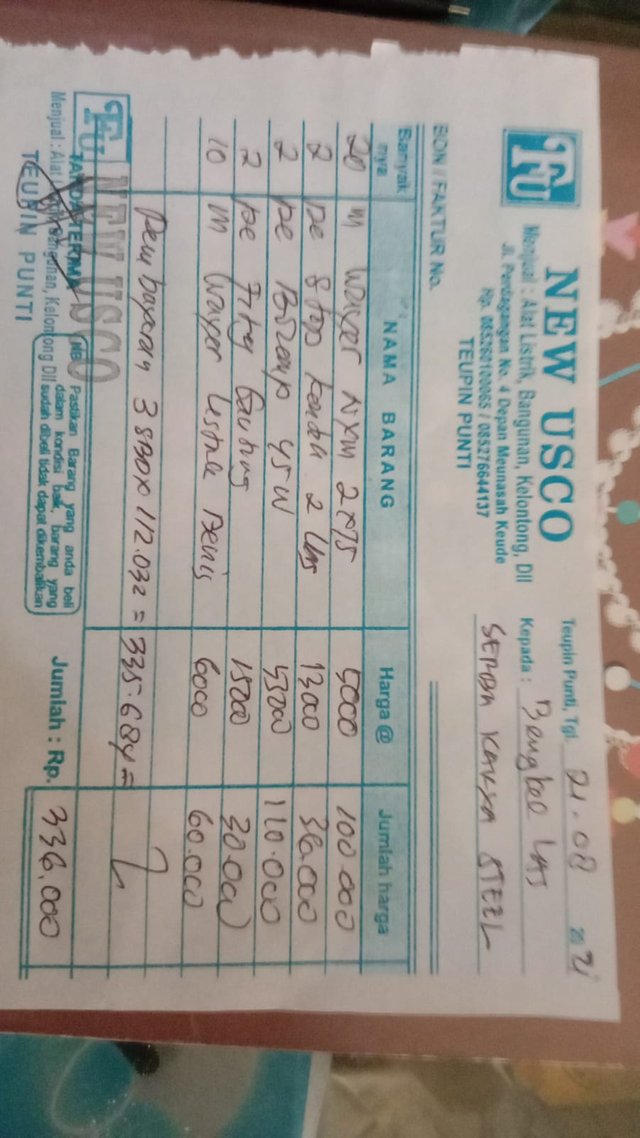 TU
NEW USCO
Menjual : Alat Listrik, Bangunan, Kelontong, Dll
Jl. Perdagangan No. 4 Depan Meunasah Keude
Hp. 085260100065 / 085276644137
TEUPIN PUNTI
Teupin Punti, Tgl. 21-08 2021
Kepada : Bengkel LAS
SEMBA KARYA STEEL
BON / FAKTUR No.
Banyak nya NAMA BARANG Harga @ Jumlah harga
20 m NYM 2 5000 100.000
2 pc Stop 2 36.000
2 pc 45W 55000 110.000
2 pc 15000 30.000
10 m 6000 60.000
Pembayaran 3 112.032 = 335.684 =
TANDA TERIMA
TU NEW USCO
Menjual : Alat Listrik, Bangunan, Kelontong Dll
TEUPIN PUNTI
NB. Pastikan Barang yang anda beli
dalam kondisi baik, barang yang
sudah dibeli tidak dapat dikembalikan
Jumlah : Rp. 336.000